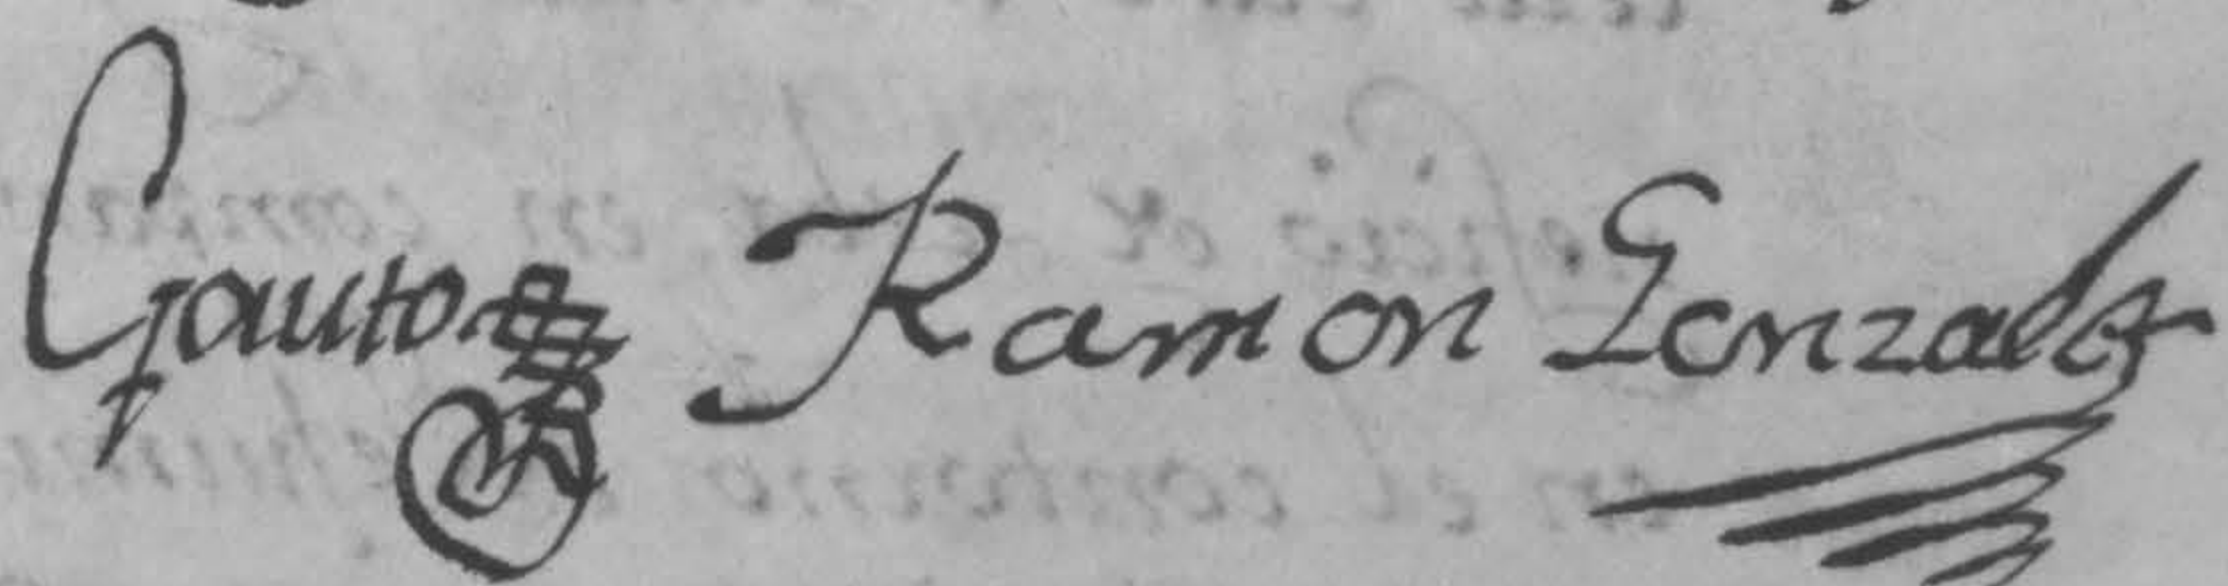 Gauto Ramon Gonzalez